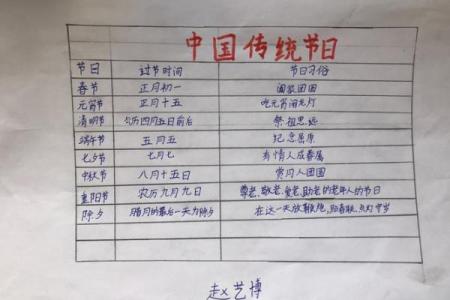 中国传统节日
节日 过节时间 节日习俗
春节 正月初一 阖家团圆
元宵节 正月十五 吃元宵闹龙灯
清明节 公历四月五日前后 祭祖思远
端午节 五月五 纪念屈原
七夕节 七月七 有情人成眷属
中秋节 八月十五日 赏月人团圆
重阳节 农历九月九日 尊老、敬老、爱老、助老的老年人的节日
除夕 腊月的最后一天为除夕 在这一天放鞭炮，贴春联，点灯守岁
赵艺博